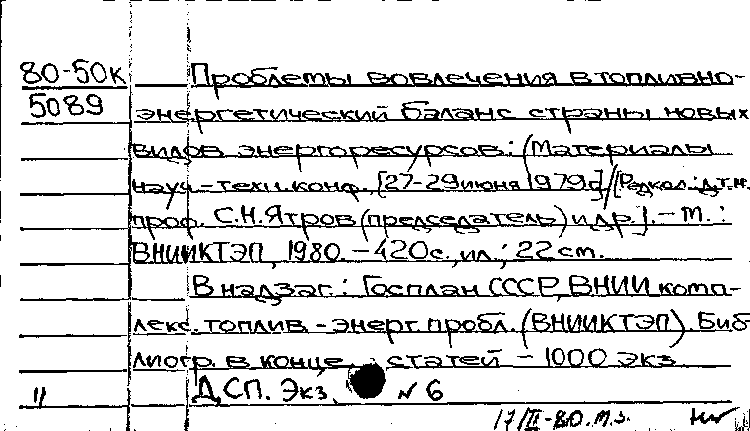 80-50к
5089
Проблемы вовлечения в топливно-
энергетический баланс страны новых
видов энергоресурсов: (Материалы
науч.-техн. конф., [27-29 июня 1979 г.] / [Редкол.: д.т.н.
проф. С.Н. Ятров (председатель) и др.]. - М.:
ВНИИКТЭП, 1980. - 420 с., ил.; 22 cm.
В надзаг.: Госплан СССР, ВНИИ комп-
лекс. топлив.-энерг. пробл. (ВНИИКТЭП). Биб
лиогр. в конце статей - 1000 экз
ДСП. Экз. № 6
11
17/III-80. м.з.